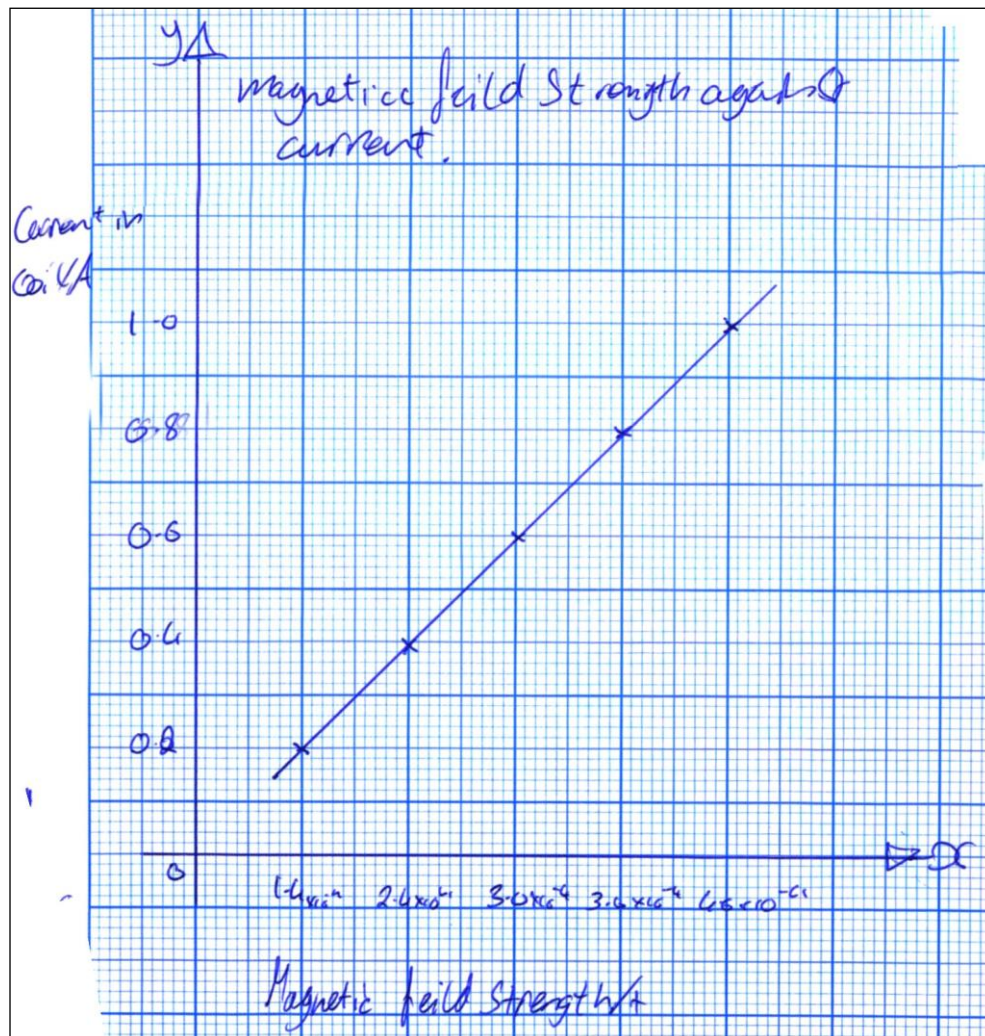 y
magneticc feild Strongth against
current.
Current in
Coil/A
1.0
0.8
0.6
0.4
0.2
0
x
1.4x10-4 2.4x10-4 3.0x10-4 3.6x10-4 4.6x10-4
Magnetic feild Strength/t